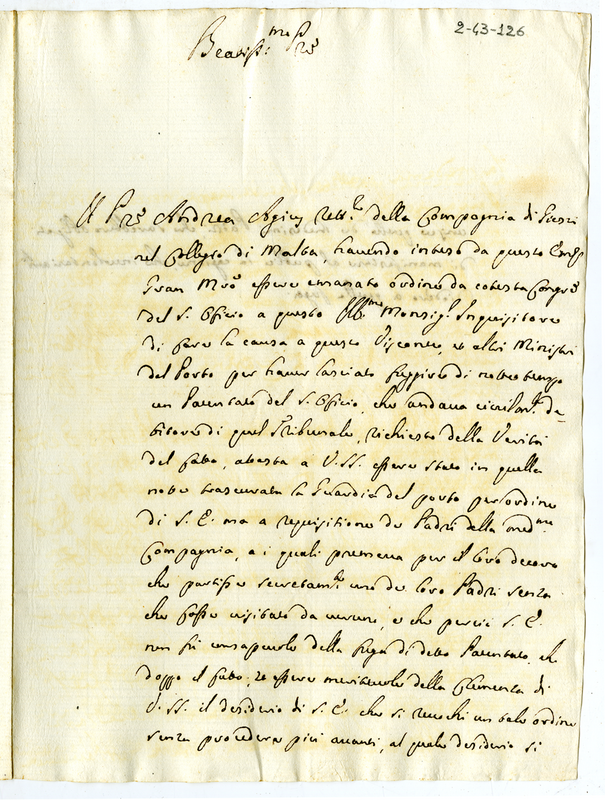 2-43-126
Beatiss.mo Pre
Il Pre Andrea Agius Rett.e della Compagnia di Giesù
nel Collegio di Malta, havendo inteso da questo Em.
Gran Mro essere emanato ordine da cotesta Congne
del S. Officio a questo Ill.mo Monsig.r Inquisitore
di fare la causa a questo Visconte, et altri Ministri
del Porto per haver lasciato fuggire di notte tempo
un Patentato del S. Officio, che andava civilm.te de-
bitore di quel Tribunale, richiesto della Verità
del fatto, attesta a V. SS. essere stata in quella
notte trascurata la Guardia del porto per ordine
di S. E. ma a requisitione de Padri della med.ma
Compagnia, a i quali premeva per il loro decoro
che partisse secretam.te uno de loro Padri senza
che fosse visitato da veruno, e che perciò S. E.
non fù consapevole della fuga di detto Patentato, che
doppo il fatto, et essere meritevole della Clemenza di
V. SS. il desiderio di S. E. che si revochi un tale ordine
senza procedere più avanti, al quale desiderio si